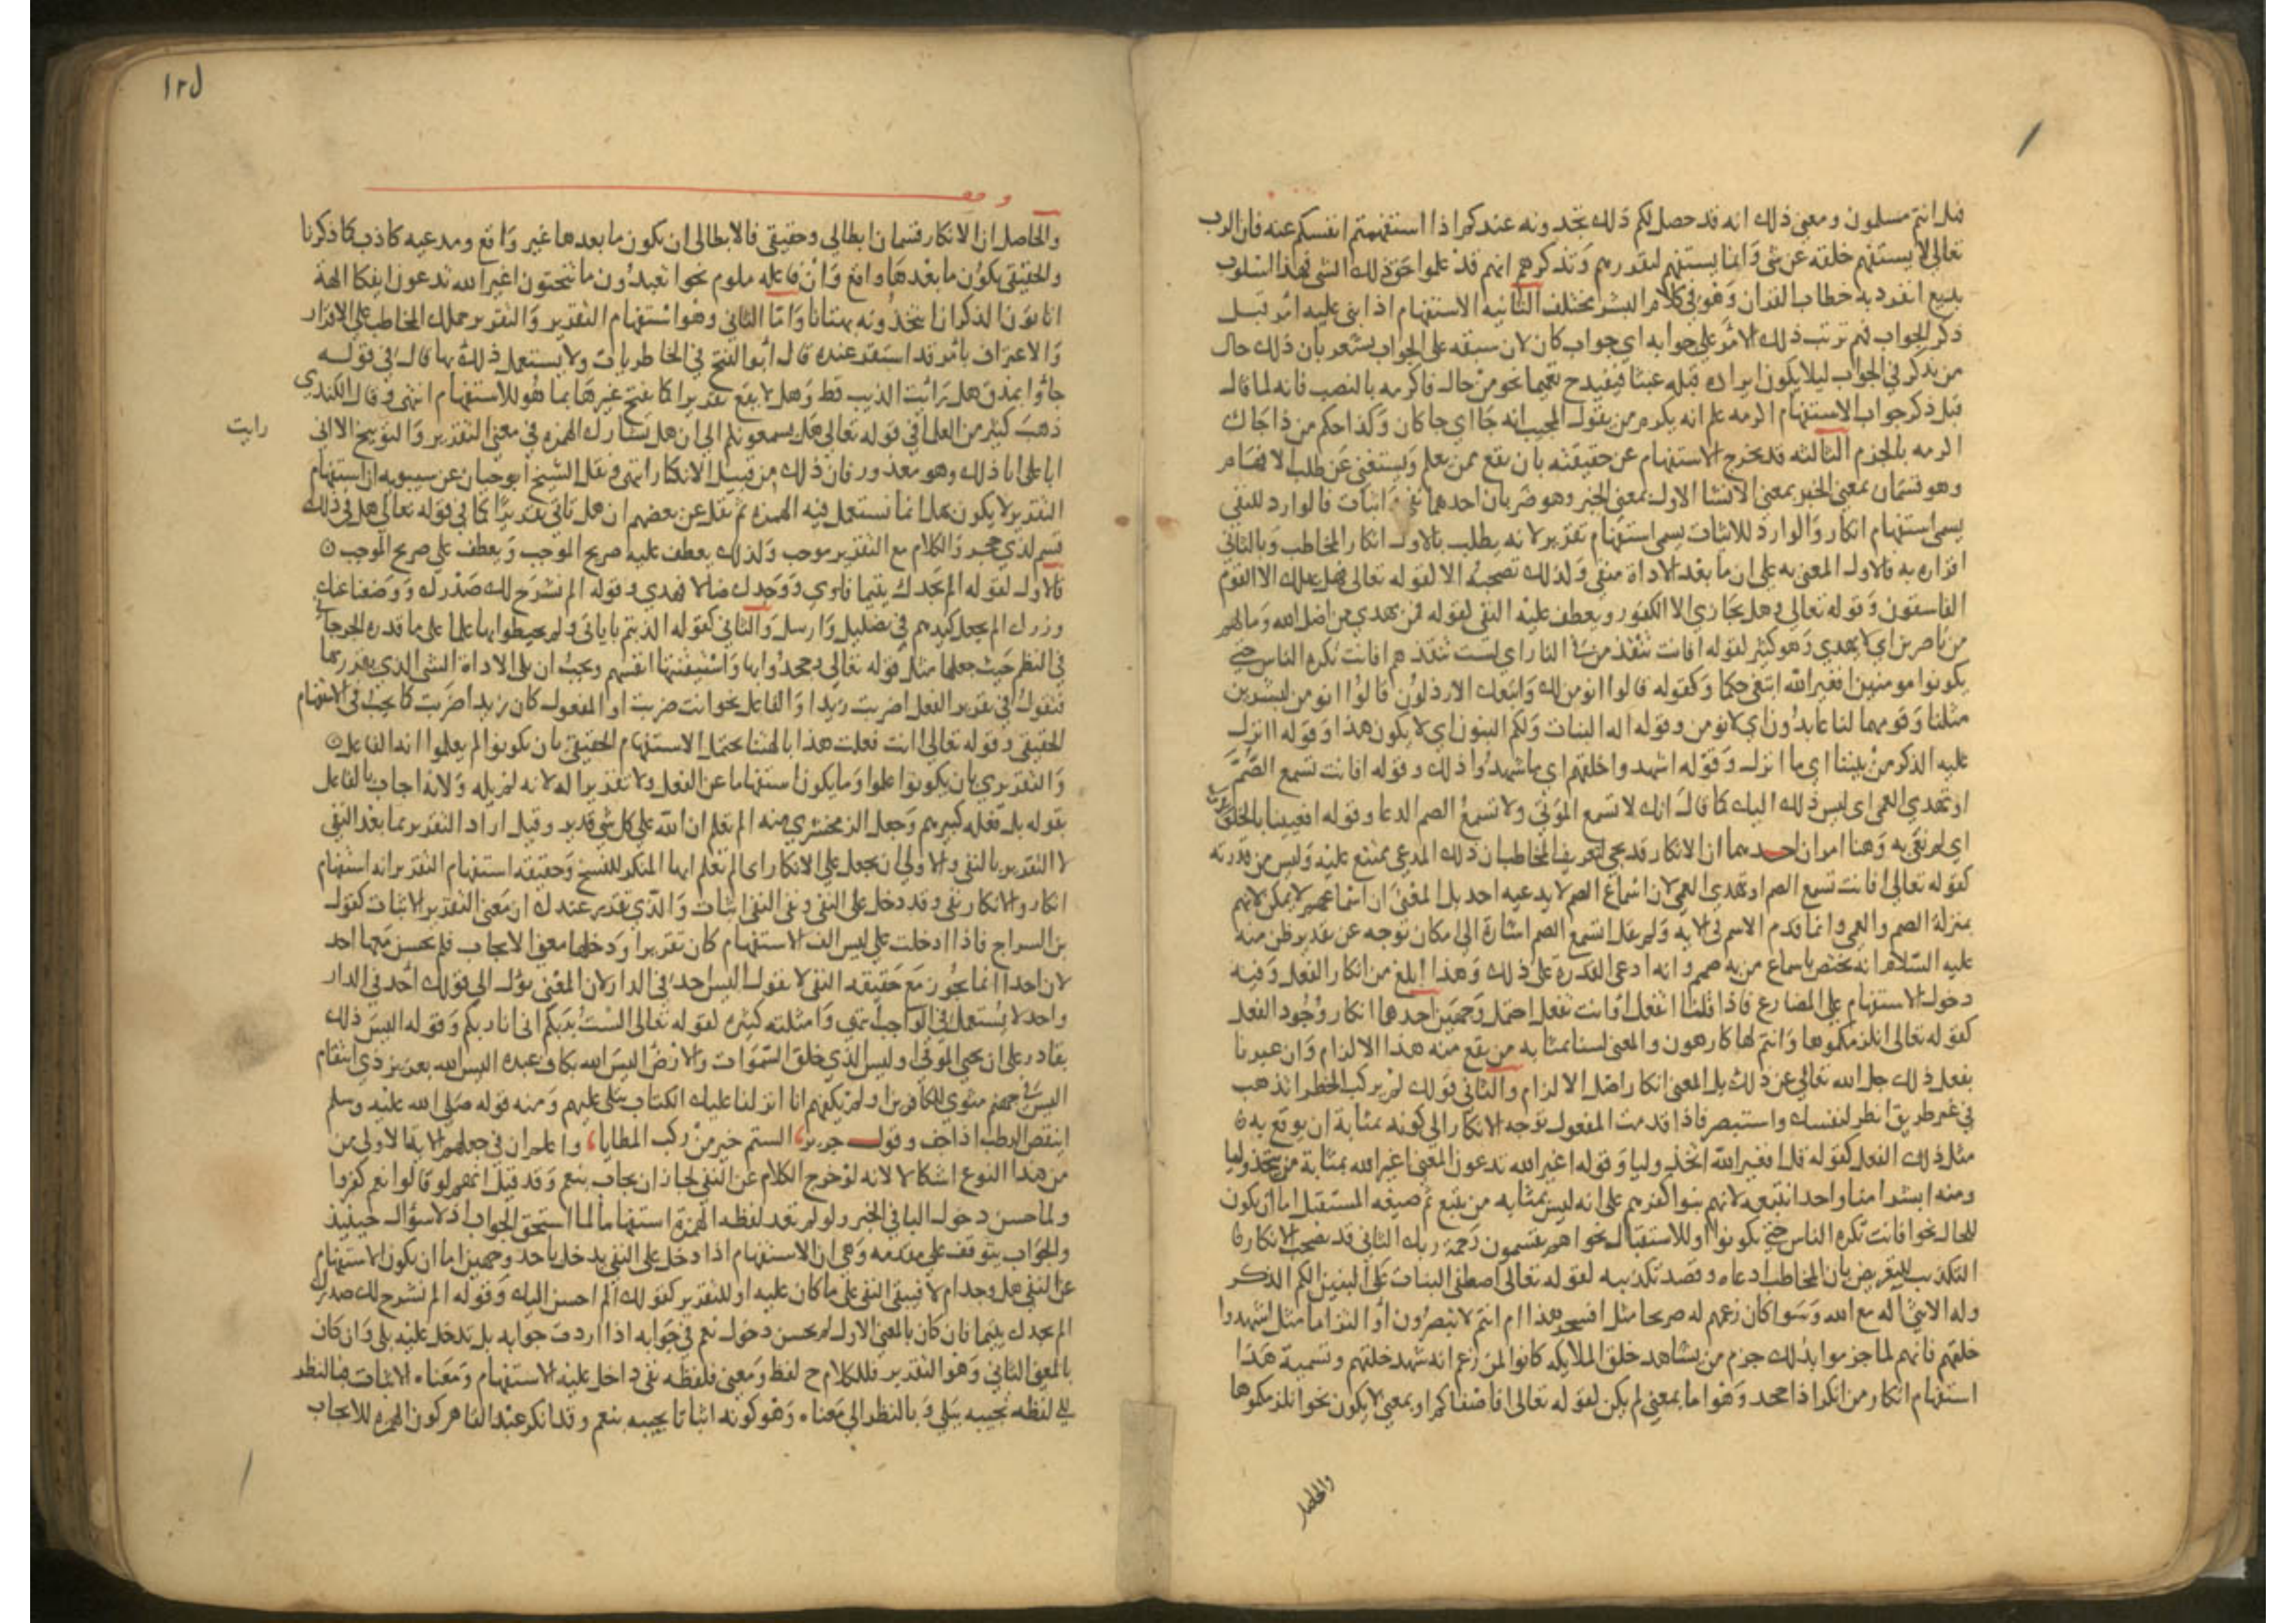 فهل انتم مسلمون ومعنى ذلك انه قد حصل لكم ذلك تجدونه عندكم اذا استفهمتم انفسكم عنه فان الرب
تعالى لا يستفهم خلقه عن شي وانما يستفهم ليقررهم ويذكرهم انهم قد علموا حق ذلك الشي فهذا اسلوب
بديع انفرد به خطاب القران وهو في كلام البشر مختلف الثانيه الاستفهام اذا بنى عليه امر قبل
ذكر الجواب فهم ترتب ذلك الامر على جوابه اي جواب كان لان سبقه على الجواب يشعر بان ذلك حال
من يذكر في الجواب ليلا يكون ايراده قبله عبثا فيفيد ح تعميما نحو من جاك فاكرمه بالنصب فانه لما قال
قبل ذكر جواب الاستفهام اكرمه علم انه يكرم من يقول المجيب انه جا اي جا كان وكذا حكم من ذا جاك
اكرمه بالجزم الثالثه قد يخرج الاستفهام عن حقيقته بان يقع ممن يعلم ويستغني عن طلب الافهام
وهو قسمان بمعنى الخبر بمعنى الانشا الاول بمعنى الخبر وهو ضربان احدهما نفي واثبات فالوارد للنفي
يسمى استفهام انكار والوارد للاثبات يسمى استفهام تقرير لانه يطلب بالاول انكار المخاطب وبالثاني
اقراره به فالاول المعنى به على ان ما بعد الاداة منفي ولذلك تصحبه الا لقوله تعالى فهل يهلك الا القوم
الفاسقون وقوله تعالى وهل نجازي الا الكفور ويعطف عليه النفي لقوله فمن يهدي من اضل الله وما لهم
من ناصرين اي لا يهدي وهو كثير لقوله افانت تنقذ من في النار اي لست تنقذهم افانت تكره الناس حتى
يكونوا مومنين افغير الله ابتغي حكما وكقوله قالوا انومن لك واتبعك الارذلون قالوا انومن لبشرين
مثلنا وقومهما لنا عابدون اي لا نومن وقوله اله البنات ولكم البنون اي لا يكون هذا وقوله اانزل
عليه الذكر من بيننا اي ما انزل وقوله اشهدوا خلقهم اي ما شهدوا ذلك وقوله افانت تسمع الصم
او تهدي العمي اي ليس ذلك اليك كما قال انك لا تسمع الموتى ولا تسمع الصم الدعا وقوله افعيينا بالخلق
اي لم نعي به وهنا امران احدهما ان الانكار قد يجي لتعريف المخاطب ان ذلك المدعي ممتنع عليه وليس من قدرته
كقوله تعالى افانت تسمع الصم او تهدي العمي لان اسماع الصم لا يدعيه احد بل المعنى ان اسماعهم لا يمكن لانهم
بمنزلة الصم والعمي وانما قدم الاسم في الايه ولم يقل اتسمع الصم اشارة الى مكان توجه عن تقدير ظن منه
عليه السلام انه يختص باسماع من به صمم وانه ادعى القدرة على ذلك وهذا ابلغ من انكار الفعل وفيه
دخول الاستفهام على المضارع فاذا قلنا اتفعل او انت تفعل احتمل وجهين احدها انكار وجود الفعل
كقوله تعالى انلزمكموها وانتم لها كارهون والمعنى لسنا بمثابه من يقع منه هذا الالزام وان عبرنا
بفعل ذلك جل الله تعالى عن ذلك بل المعنى انكار اصل الالزام والثاني قولك لمن يركب الخطر اتذهب
في غير طريق انظر لنفسك واستبصر فاذا قدمت المفعول توجه الانكار الى كونه بمثابة ان يوقع به
مثل ذلك الفعل كقوله قل افغير الله اتخذ وليا وقوله اغير الله تدعون المعنى اغير الله بمثابة من يتخذ وليا
ومنه ابشرا منا واحدا نتبعه لانهم بنوا كفرهم على انه ليس بمثابه من يتبع ثم صيغه المستقبل اما ان يكون
للحال نحو افانت تكره الناس حتى يكونوا او للاستقبال نحو اهم يقسمون رحمة ربك الثاني قد يصحب الانكار
التكذيب للتعريض بان المخاطب ادعاه وقصد تكذيبه لقوله تعالى اصطفى البنات على البنين الكم الذكر
وله الانثى اله مع الله وسوا كان زعمهم له صريحا مثل افسحر هذا ام انتم لا تبصرون او التزاما مثل اشهدوا
خلقهم فانهم لما جزموا بذلك جزم من يشاهد خلق الملايكه كانوا كمن زعم انه شهد خلقهم وتسمية هذا
استفهام انكار من انكر اذا جحد وهو اما بمعنى لم يكن لقوله تعالى افاصفاكم او بمعنى لا يكون نحو انلزمكموها
والحاصل
١٢٥
والحاصل ان الانكار قسمان ابطالي وحقيقي فالابطالي ان يكون ما بعدها غير واقع ومدعيه كاذب كما ذكرنا
والحقيقي يكون ما بعدها واقع وان فاعله ملوم نحو اتعبدون ما تنحتون اغير الله تدعون ايفكا الهة
اتاتون الذكران اتاخذونه بهتانا واما الثاني وهو استفهام التقرير والتقرير حملك المخاطب على الاقرار
والاعتراف بامر قد استقر عنده قال ابو الفتح في الخاطريات ولا يستعمل ذلك بها قال في قوله
جاوا بمذق هل رايت الذيب قط وهل لا يقع تقديرا كما يقع غيرها بما هو للاستفهام انتهى وقال الكندي
ذهب كثير من العلما في قوله تعالى هل يسمعونكم الى ان هل تشارك الهمزه في معنى التقرير والتوبيخ الا اني
رايت
ابا علي ابا ذلك وهو معذور فان ذلك من قبيل الانكار انتهى ونقل الشيخ ابو حيان عن سيبويه ان استفهام
التقرير لا يكون بهل انما تستعمل فيه الهمزه ثم نقل عن بعضهم ان هل تاتي تقريرا كما في قوله تعالى هل في ذلك
قسم لذي حجر والكلام مع التقرير موجب ولذلك يعطف عليه صريح الموجب ويعطف على صريح الموجب
فالاول لقوله الم يجدك يتيما فاوى ووجدك ضالا فهدى وقوله الم نشرح لك صدرك ووضعنا عنك
وزرك الم يجعل كيدهم في تضليل وارسل والثاني كقوله اكذبتم باياتي ولم تحيطوا بها علما على ما قدره الجرجاني
في النظم حيث جعلها مثل قوله تعالى وجحدوا بها واستيقنتها انفسهم ويجب ان يلي الاداة الشي الذي يقرر بها
فتقول في تقرير الفعل اضربت زيدا والفاعل نحو اانت ضربت او المفعول كان زيدا ضربت كما يجب في الاستفهام
الحقيقي وقوله تعالى اانت فعلت هذا بالهتنا يحتمل الاستفهام الحقيقي بان يكونوا لم يعلموا انه الفاعل
والتقريري بان يكونوا علموا وما يكون استفهاما عن الفعل ولا تقريرا له لانه لم يله ولانه اجاب بالفاعل
بقوله بل فعله كبيرهم وجعل الزمخشري منه الم تعلم ان الله على كل شي قدير وقيل اراد التقرير بما بعد النفي
لا التقرير بالنفي والاولى ان يجعل على الانكار اي الم تعلم ايها المنكر للنسخ وحقيقه استفهام التقرير انه استفهام
انكار والانكار نفي وقد دخل على النفي ونفي النفي اثبات والذي يقرر عندك ان معنى التقرير الاثبات كقول
بن السراج فاذا ادخلت على ليس الف الاستفهام كان تقريرا ودخلها معنى الايجاب فلم يحسن معها احد
لان احدا انما يجوز مع حقيقه النفي لا تقول اليس احد في الدار لان المعنى يؤل الى قولك احد في الدار
واحد لا يستعمل في الواجب وامثلته كثيره لقوله تعالى الست بربكم اني اناديكم وقوله اليس ذلك
بقادر على ان يحيي الموتى اوليس الذي خلق السموات والارض اليس الله بكاف عبده اليس الله بعزيز ذي انتقام
اليس في جهنم مثوى للكافرين اولم يكفهم انا انزلنا عليك الكتاب يتلى عليهم ومنه قوله صلى الله عليه وسلم
اينقص الرطب اذا جف وقول جرير الستم خير من ركب المطايا واعلم ان في جعلهم الايه الاولى من
من هذا النوع اشكالا لانه لو خرج الكلام عن النفي لجاز ان يجاب بنعم وقد قيل انهم لو قالوا نعم كفروا
ولما حسن دخول البا في الخبر ولو لم تفد لفظه الهمزة استفهاما لما استحق الجواب اذ لا سؤال حينيذ
والجواب يتوقف على مقدمه وهي ان الاستفهام اذا دخل على النفي يدخل باحد وجهين اما ان يكون الاستفهام
عن النفي هل وجد ام لا فيبقى النفي على ما كان عليه او للتقرير كقولك الم احسن اليك وقوله الم نشرح لك صدرك
الم يجدك يتيما فان كان بالمعنى الاول لم يحسن دخول نعم في جوابه اذا اردت جوابه بل تدخل عليه بلى وان كان
بالمعنى الثاني وهو التقرير فللكلام ح لفظ ومعنى فلفظه نفي داخل عليه الاستفهام ومعناه الاثبات فبالنظر
الى لفظه تجيبه ببلى وبالنظر الى معناه وهو كونه اثباتا تجيبه بنعم وقد انكر عبد القاهر كون الهمزه للايجاب